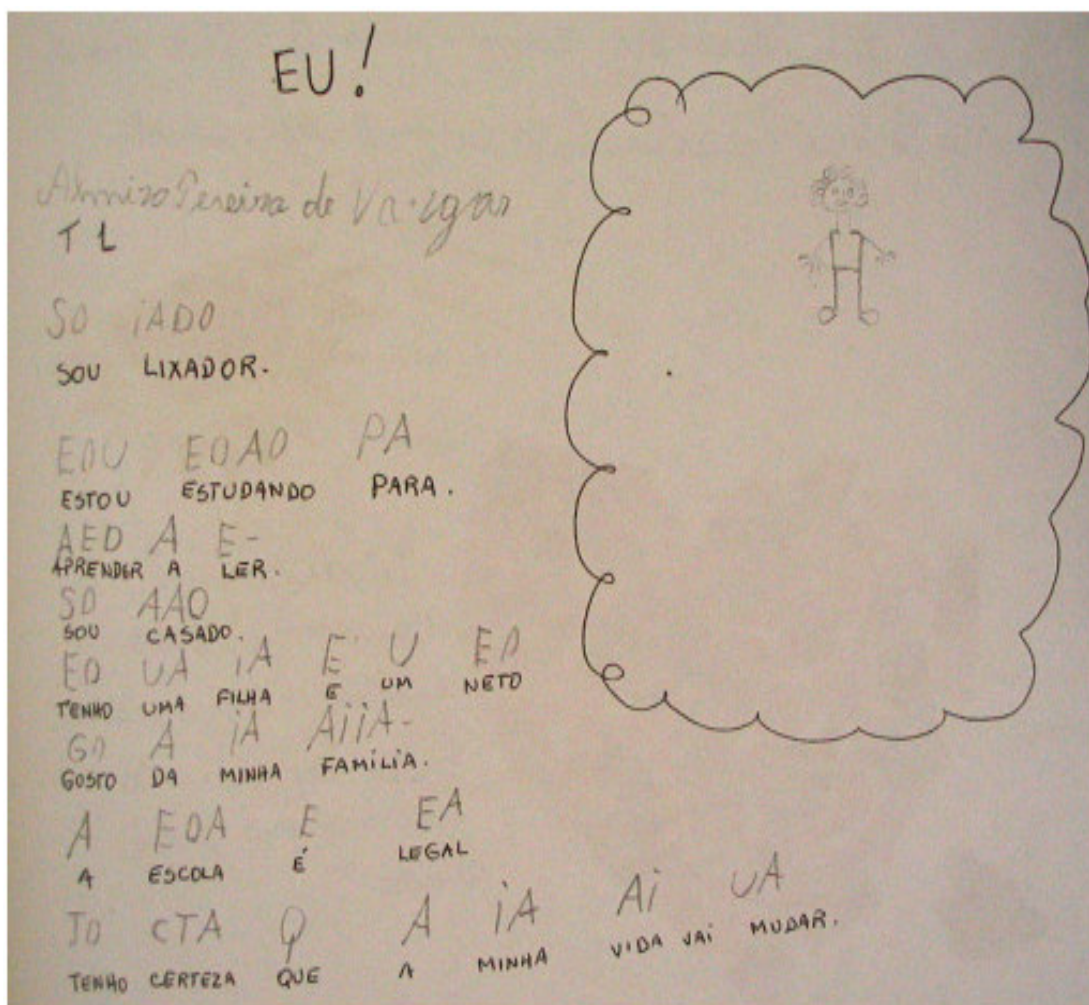 EU!
Almiro Pereira de Vargas
T 1
SO iADO
SOU LIXADOR.
EOU EOAO PA
ESTOU ESTUDANDO PARA.
AED A E-
APRENDER A LER.
SO AAO
SOU CASADO.
EO UA iA E U EO
TENHO UMA FILHA E UM NETO
GO A iA AiiA-
GOSTO DA MINHA FAMÍLIA.
A EOA E EA
A ESCOLA É LEGAL
TO CTA Q A iA Ai UA
TENHO CERTEZA QUE A MINHA VIDA VAI MUDAR.